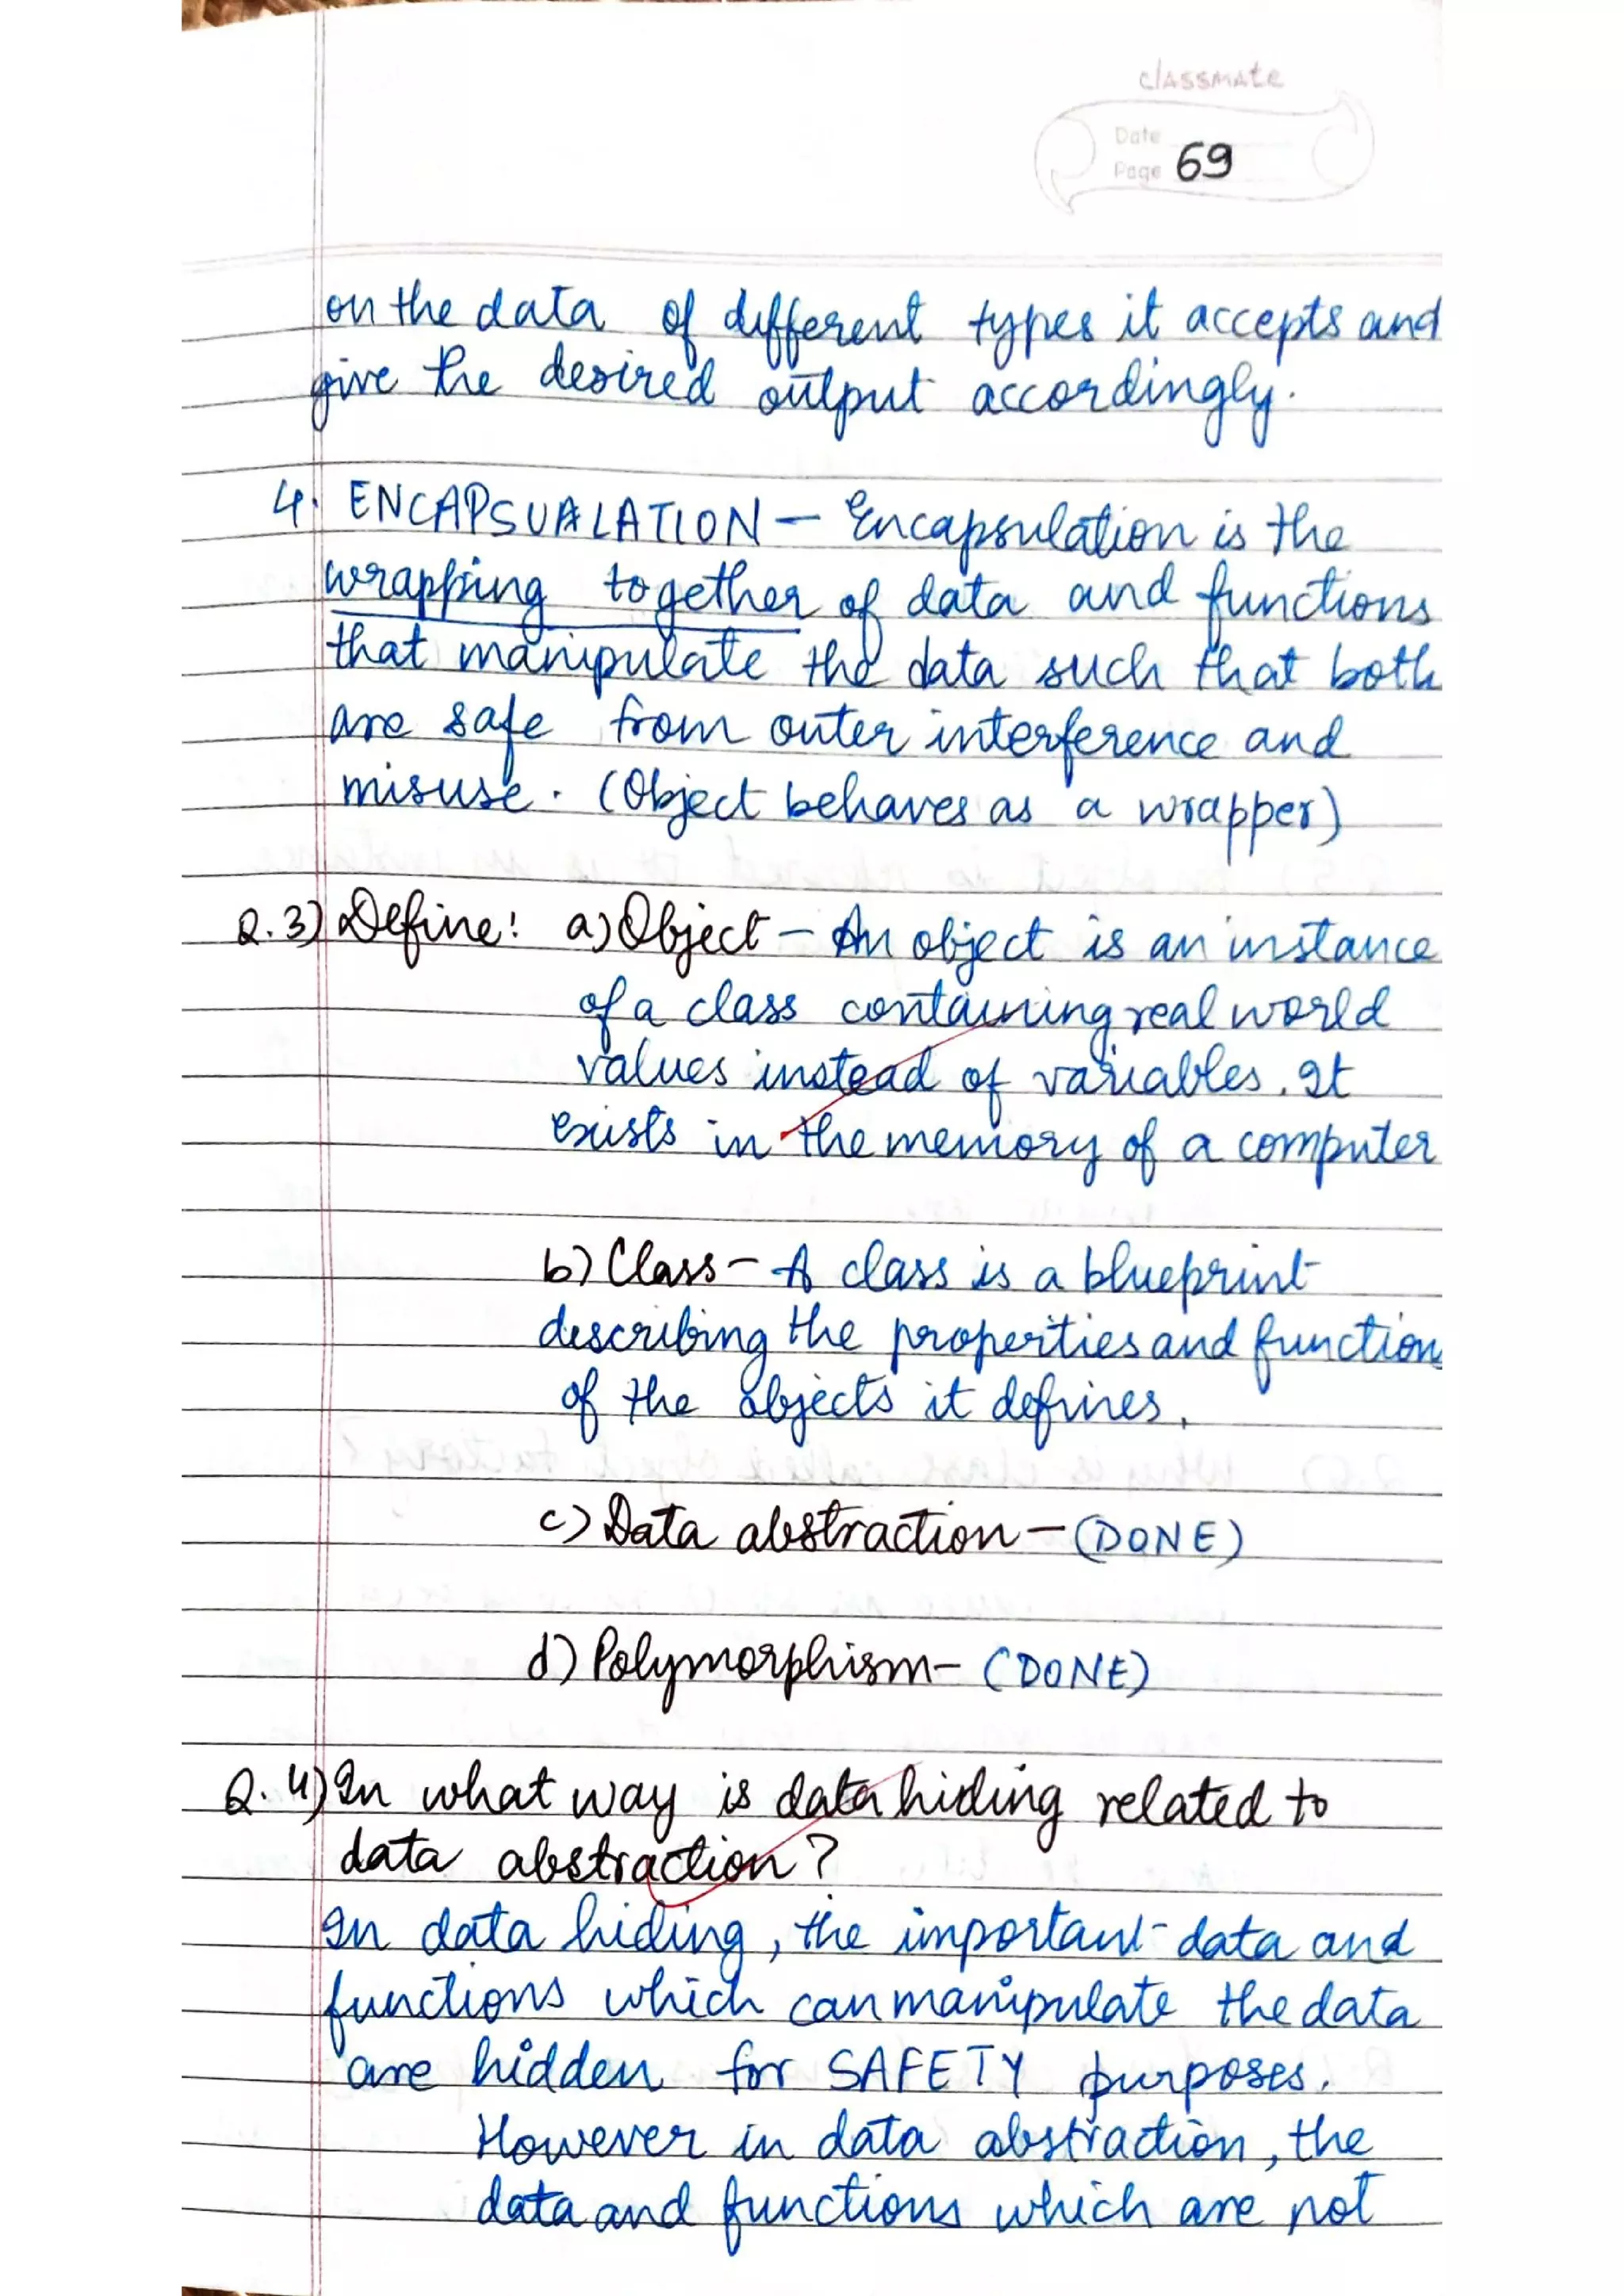 classmate
Date
Page 69
on the data of different types it accepts and
give the desired output accordingly.
4. ENCAPSUALATION - Encapsulation is the
wrapping together of data and functions
that manipulate the data such that both
are safe from outer interference and
misuse. (Object behaves as a wrapper)
Q.3) Define: a) Object - An object is an instance
of a class containing real world
values instead of variables. It
exists in the memory of a computer
b) Class - A class is a blueprint
describing the properties and function
of the objects it defines.
c) Data abstraction - (DONE)
d) Polymorphism - (DONE)
Q.4) In what way is data hiding related to
data abstraction?
In data hiding, the important data and
functions which can manipulate the data
are hidden for SAFETY purposes.
However in data abstraction, the
data and functions which are not